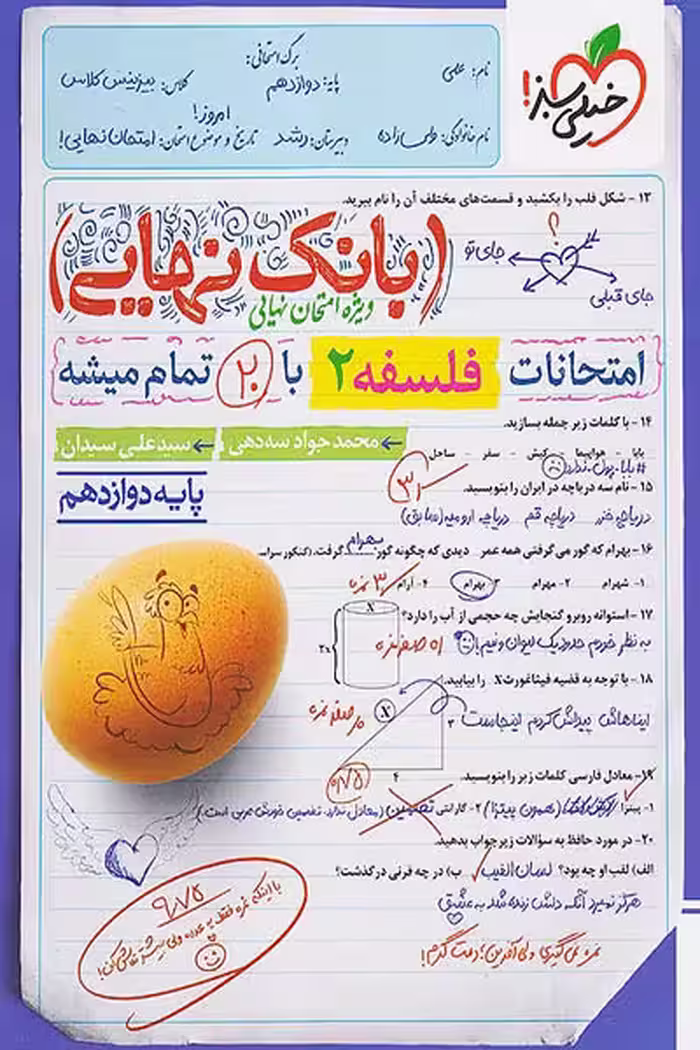 خیلی سبز!
برگ امتحانی:
نام: علی
پایه: دوازدهم
کلاس: بیزینس کلاس
نام خانوادگی: ولی‌زاده
دبیرستان: رشد
امروز!
تاریخ و موضوع امتحان: امتحان نهایی!
۱۳ - شکل قلب را بکشید و قسمت‌های مختلف آن را نام ببرید.
؟
جای تو
جای قبلی
(بانک نهایی)
ویژه امتحان نهایی
امتحانات فلسفه ۲ با ۲۰ تمام میشه
۱۴ - با کلمات زیر جمله بسازید.
محمدجواد سه‌دهی
سیدعلی سیدان
بابا - هواپیما - کیش - سفر - ساحل
#بابا_پول_ندارد
۱۵ - نام سه دریاچه در ایران را بنویسید.
پایه دوازدهم
دریاچه خزر دریاچه قم دریاچه ارومیه (سابق)
۱۶ - بهرام که گور می‌گرفتی همه عمر دیدی که چگونه گور بهرام گرفت. (کنکور سراسـ
۱- شهرام ۲- مهرام ۳- بهرام ۴- آرام
۳ نمره
۱۷ - استوانه روبرو گنجایش چه حجمی از آب را دارد؟
X
۲x
به نظر خودم حدود یک لیوان و نیم!
۰/۵ صفر نمره
۱۸ - با توجه به قضیه فیثاغورث X را بیابید.
ایناهاش پیداش کردم اینجاست
X
۳
۴
۱۹- معادل فارسی کلمات زیر را بنویسید.
۱- پیتزا (همون پیتزا) ۲- گارانتی تضمین (معادل ندارد، تضمین خودش عربی است.)
۲۰- در مورد حافظ به سؤالات زیر جواب بدهید.
الف) لقب او چه بود؟ لسان الغیب ب) در چه قرنی درگذشت؟
هرگز نمیرد آنکه دلش زنده شد به عشق
نمره نمی‌گیری ولی آفرین! دمت گرم!
۹/۷۵
با اینکه نمره فقط یه عدده ولی بیشتر تلاش کن!